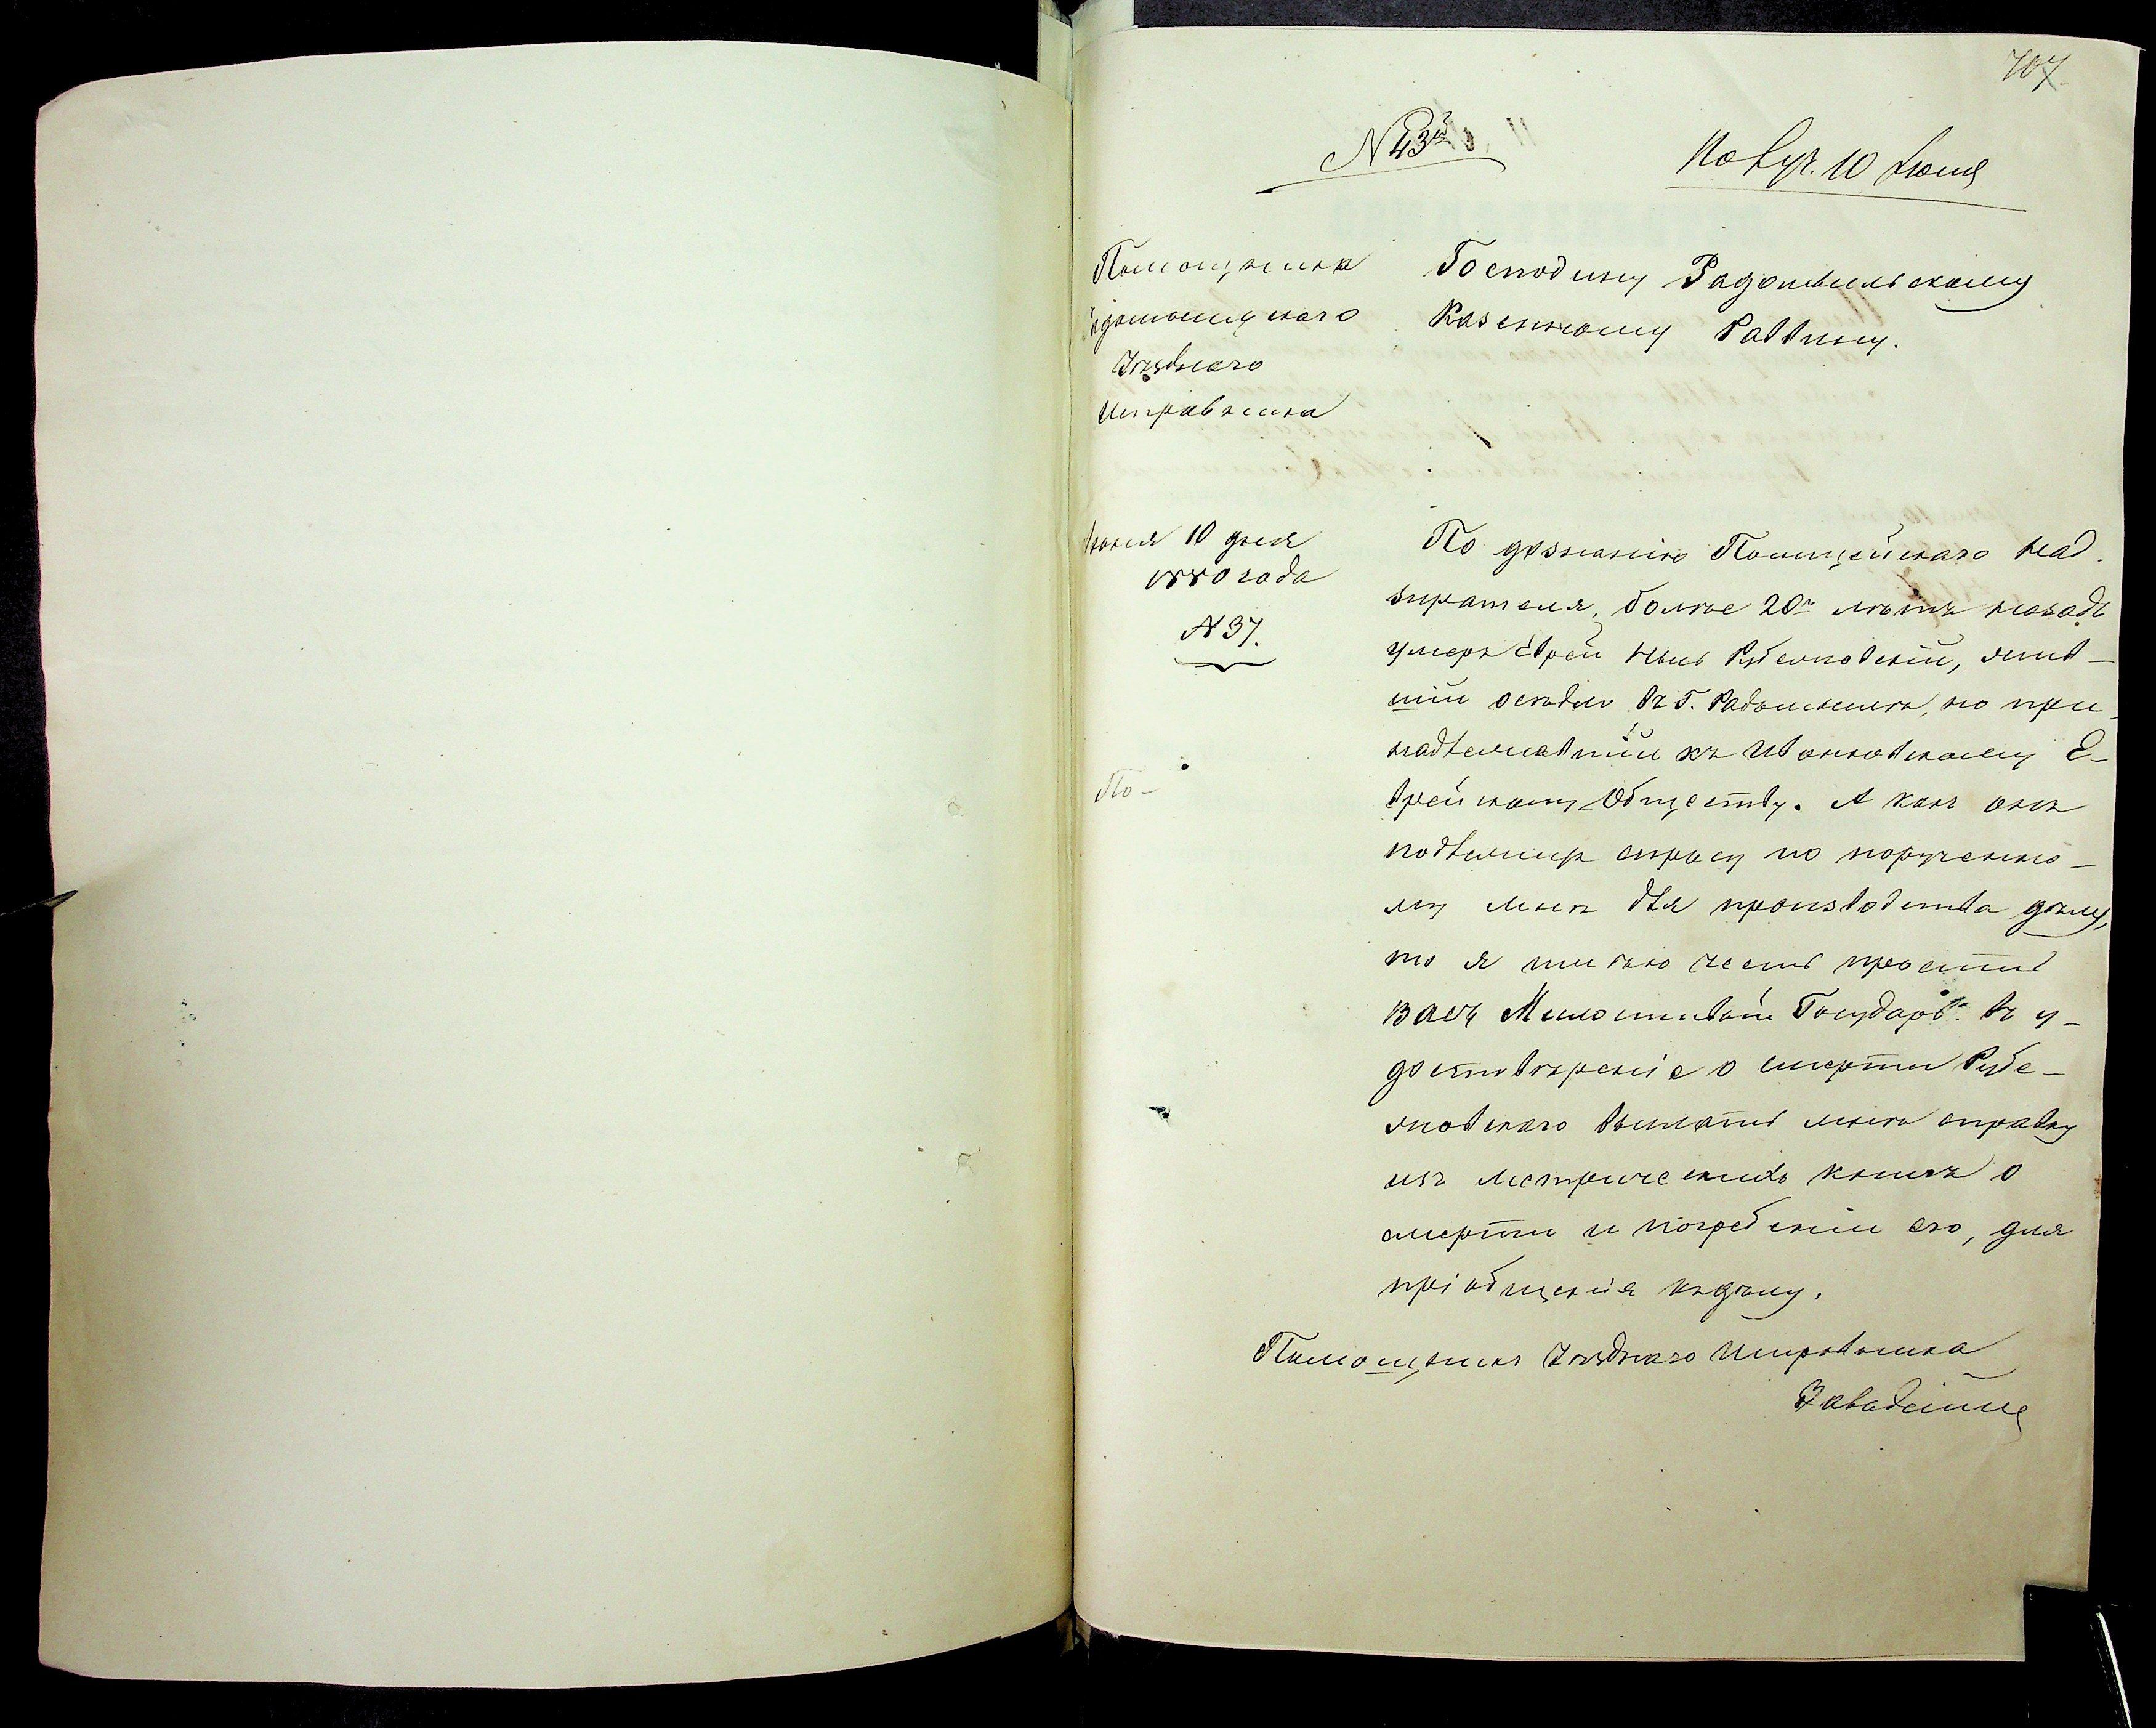 707
N 43й
Получ. 10 Июня
Помощника
Радомысльскаго
Уѣзднаго
Исправника
Господину Радомысльскому
Казенному Раввину.
Июня 10 дня
1880 года
N 37.
По-
По дознанію Полицейскаго Над-
зирателя, болѣе 20ти лѣтъ назадъ
умеръ Еврей Рубежовскій, жив-
шій осѣдло въ Г. Радомыслѣ, но при-
надлежавшій къ Иванковскому Е-
врейскому Обществу. А какъ онъ
подлежитъ спросу по порученно-
му мнѣ для производства дѣлу,
то я имѣю честь просить
Васъ Милостивый Государь въ у-
достовѣреніе о смерти Рубе-
жовскаго выслать мнѣ справку
изъ метрическихъ книгъ о
смерти и погребеніи его, для
пріобщенія къ дѣлу.
Помощникъ Уѣзднаго Исправника